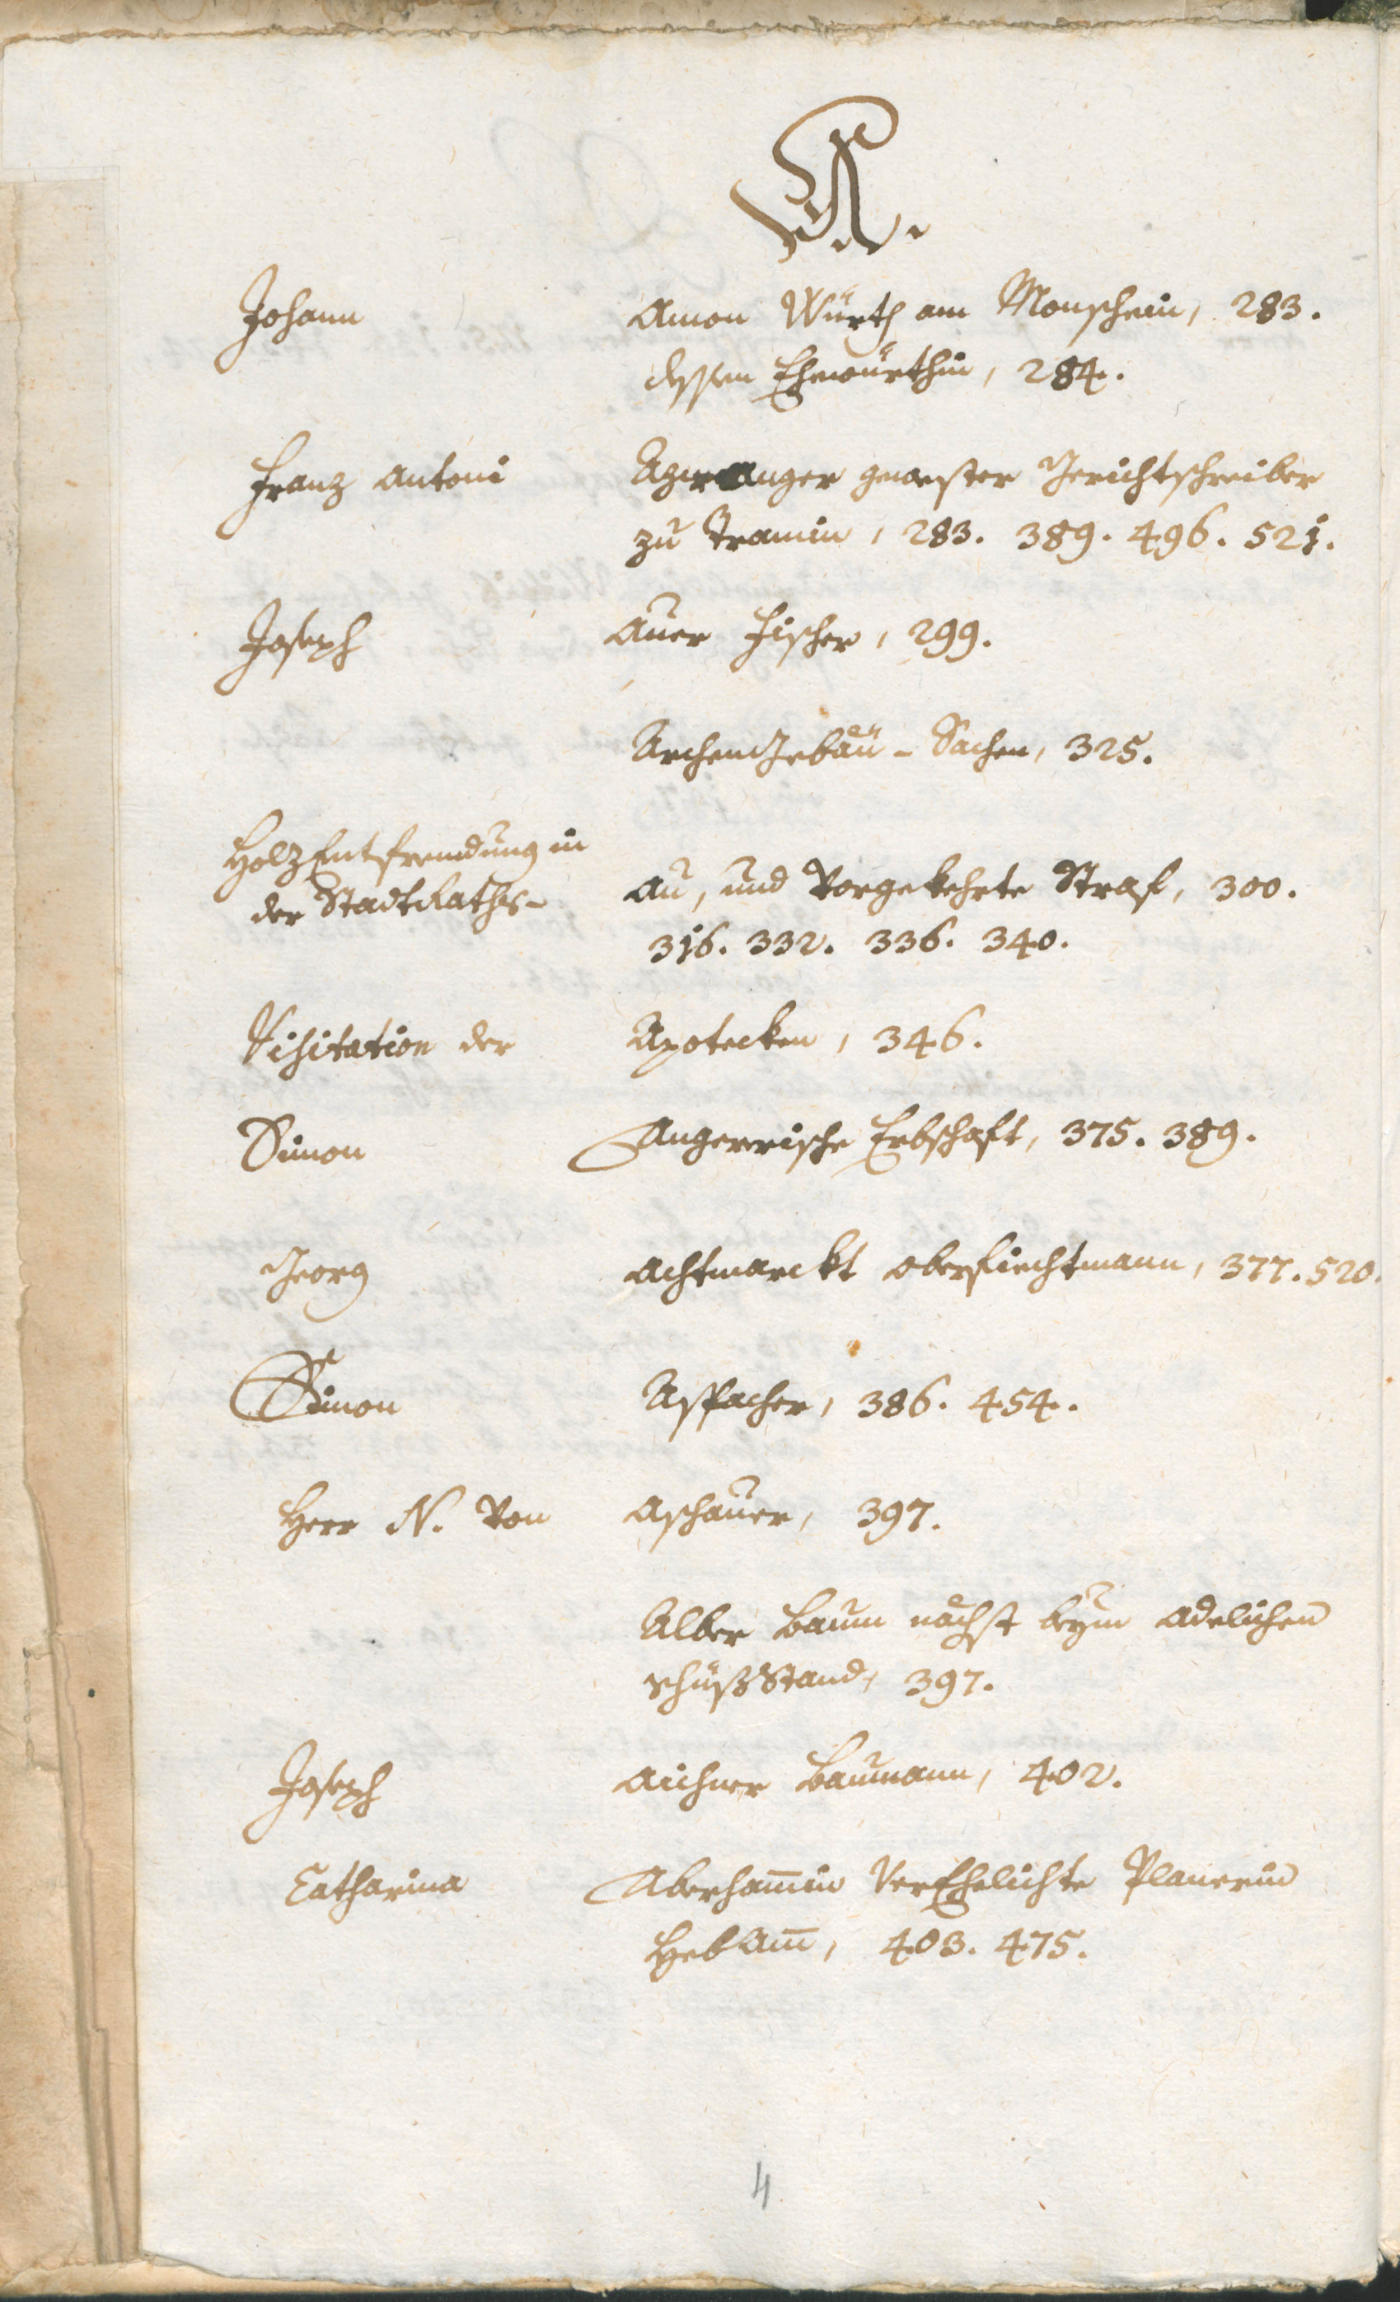 A.
Johann Amon Würth am Monschein, 283.
dessen Ehewürthin, 284.
Franz Antoni Azwanger gewester Gerichtschreiber
zu Tramin, 283. 389. 496. 521.
Joseph Auer Fischer, 299.
ArchenGebäu-Sachen, 325.
HolzEntfremdung in
der StadtRaths- Au, und Vorgekehrte Straf, 300.
316. 332. 336. 340.
Visitation der Apotecken, 346.
Simon Angerrische Erbschaft, 375. 389.
Georg Achtmarckt 377. 520.
Simon Aspacher, 386. 454.
Herr N. Von Aschauer, 397.
Alber Baum nächst beym Adelichen
schüßStand, 397.
Joseph Aichner Baumann, 402.
Catharina Aberham̅in VerEhelichte Planerin
HebAm̅, 403. 475.
4